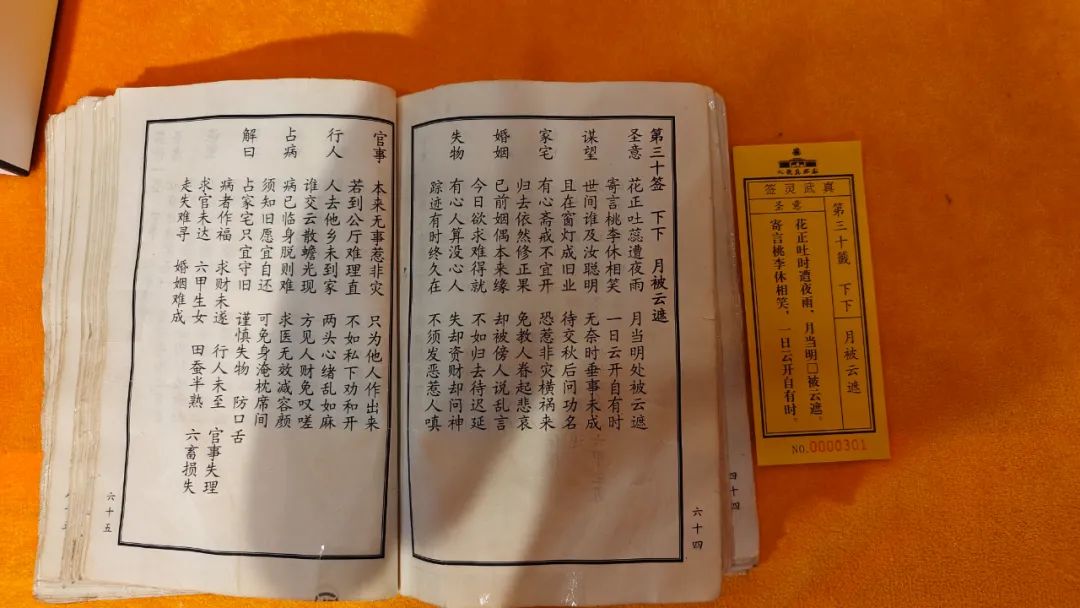 第三十签 下下 月被云遮
圣意 花正吐蕊遭夜雨 月当明处被云遮
寄言桃李休相笑 一日云开自有时
谋望 世间谁及汝聪明 无奈时垂事未成
且在窗灯成旧业 待交秋后问功名
家宅 有心斋戒不宜开 恐惹非灾横祸来
归去依然修正果 免教人眷起悲哀
婚姻 已前姻偶本来缘 却被傍人说乱言
今日欲求难得就 不如归去待迟延
失物 有心人算没心人 失却资财却问神
踪迹有时终久在 不须发恶惹人嗔
六十四
官事 本来无事惹非灾 只为他人作出来
若到公厅难理直 不如私下劝和开
行人 人去他乡未到家 两头心绪乱如麻
谁交云散蟾光现 方见人财免叹嗟
占病 病已临身脱则难 求医无效减容颜
须知旧愿宜自还 可免身淹枕席间
解曰 占家宅只宜守旧 谨慎失物 防口舌
病者作福 求财未遂 行人未至 官事失理
求官未达 六甲生女 田蚕半熟 六畜损失
走失难寻 婚姻难成
六十五
四十四
真武灵签
第三十籤 下下 月被云遮
圣意
花正吐时遭夜雨，月当明□被云遮。
寄言桃李休相笑，一日云开自有时。
NO.0000301